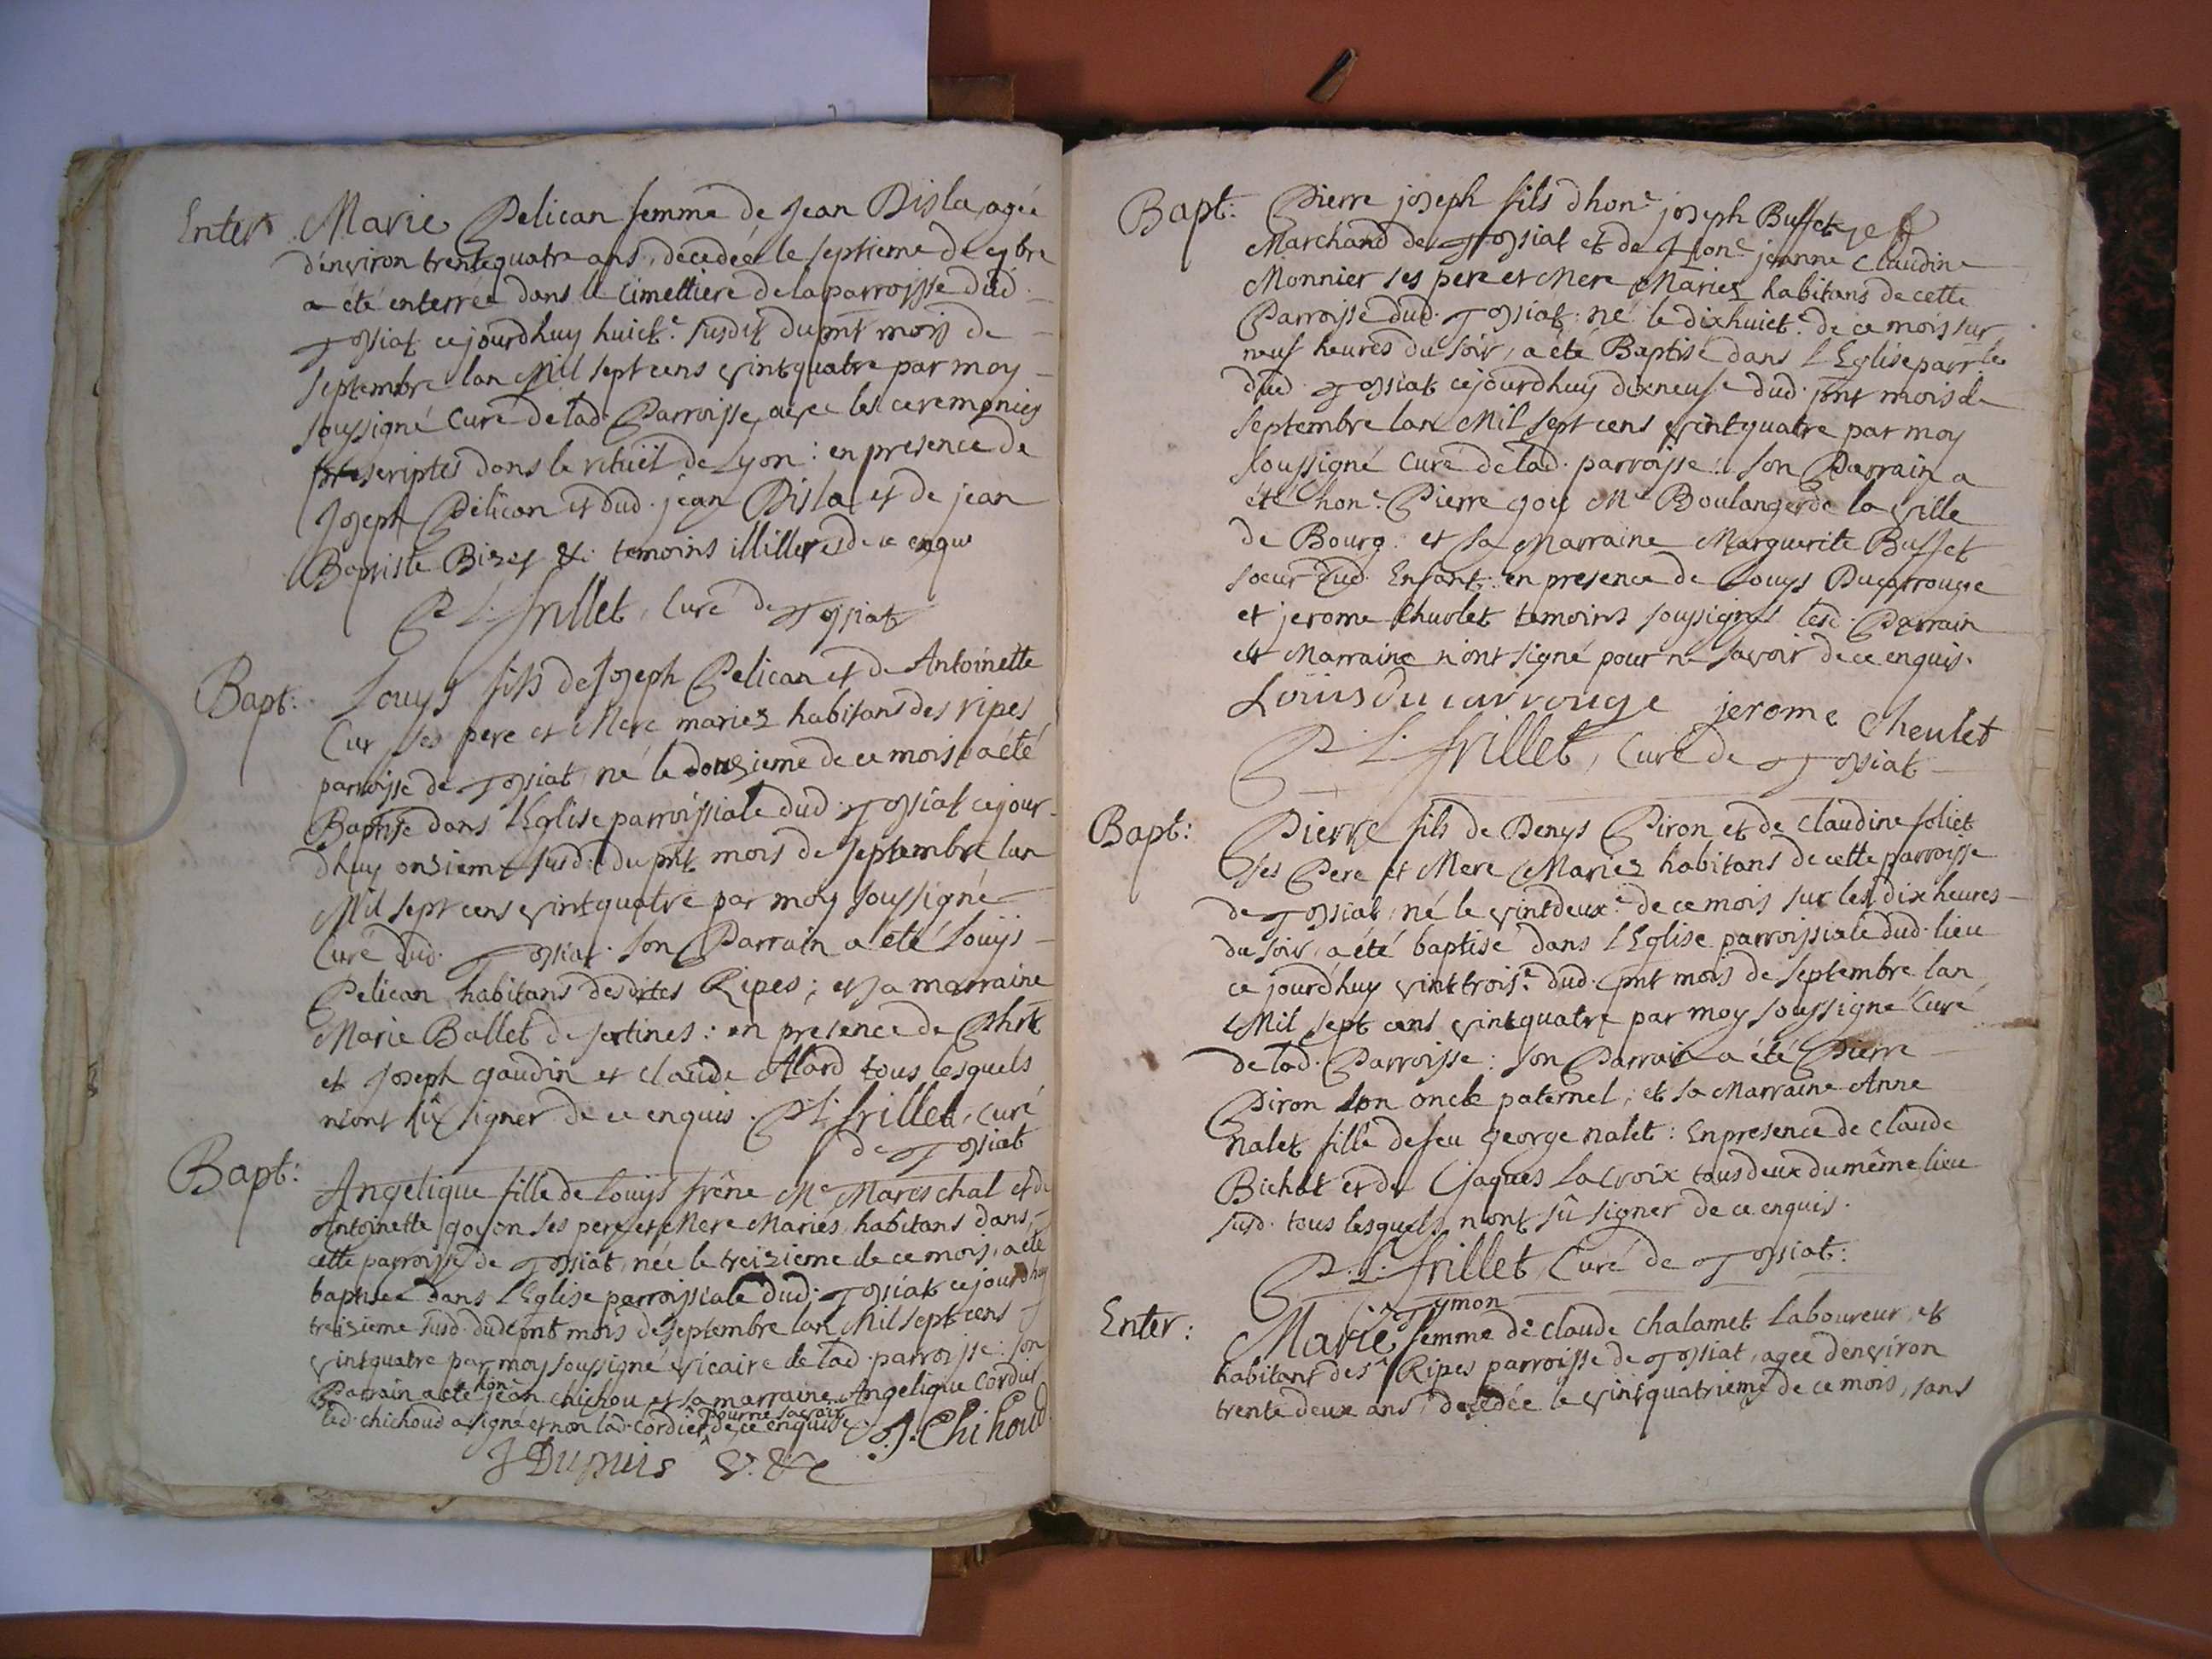 Enter Marie Pelican femme de Jean Disla, agée
d'environ trentequatre ans, decedée le septieme de 7bre
a été enterrée dans le Cimettiere de la parroisse dud.
Tossiat cejourdhuy huict.e susdit du pnt mois de
septembre lan Mil sept cens vintquatre par moy
soussigné Curé de lad. Parroisse avec les ceremonies
prescriptes dans le rituel de Lyon : en presence de
Joseph Pelican et dud. jean Disla et de jean
Baptiste Bizet &c. temoins illilleres de ce enquis
P. L. frillet, Curé de Tossiat
Bapt: Louys fils de Joseph Pelican et de Antoinette
Cur, ses pere et Mere mariez habitans des ripes
parroisse de Tossiat, né le onzieme de ce mois, a été
Baptisé dans l'Eglise parroissiale dud. Tossiat cejour-
dhuy onzieme susd. du pnt mois de septembre lan
Mil sept cens vintquatre par moy soussigné
Curé dud. Tossiat. Son Parrain a été Louys
Pelican habitans desdites Ripes ; et sa marraine
Marie Ballet de sertines : en presence de
et Joseph gaudin et claude Alard tous lesquels
n'ont sû signer de ce enquis. P. L. frillet, curé
de Tossiat
Bapt: Angelique fille de Louys frêne Me Mareschal et de
Antoinette goyon ses pere et Mere Mariés, habitans dans
cette parroisse de Tossiat, née le treizieme de ce mois, a été
baptisée dans l'Eglise parroissiale dud. Tossiat cejourdhuy
treizieme susd. dud. pnt mois de septembre lan Mil sept cens
vintquatre par moy soussigné vicaire de lad. parroisse : son
Parrain a été hon. jean chichou et sa marraine Angelique Cordier
led. chichoud a signé et non lad. Cordier, pour ne savoir de ce enquise J. Chihoud
J Dupuis V. &c
Bapt: Pierre joseph fils d'hon.e joseph Buffet
Marchand de Tossiat et de Hon.e jeanne claudine
Monnier ses pere et Mere Mariez habitans de cette
Parroisse dud. Tossiat : né le dixhuict.e de ce mois sur
neuf heures du soir, a été Baptisé dans l'Eglise parr.le
dud. Tossiat cejourdhuy dixneuf.e dud. pnt mois de
septembre lan Mil sept cens vintquatre par moy
soussigné Curé de lad. parroisse : son Parrain a
été hon.e Pierre goy Me Boulanger de la ville
de Bourg. et sa Marraine Marguerite Buffet
soeur dud. Enfant : en presence de Louys Ducarrouge
et jerome Chuvlet temoins soussignés lesd. Parrain
et Marraine n'ont signé pour ne savoir de ce enquis.
Loüis du carrouge jerome Cheulet
P. L. frillet, Curé de Tossiat
Bapt: Pierre fils de Denys Piron et de claudine foliet
ses Pere et Mere Mariez habitans de cette parroisse
de Tossiat, né le vintdeux.e de ce mois sur les dix heures
du soir, a été baptisé dans l'Eglise parroissiale dud. lieu
ce jourdhuy vinttrois.e dud. pnt mois de septembre lan
Mil sept cens vintquatre par moy soussigné Curé
de lad. Parroisse : son Parrain a été Pierre
Piron son oncle paternel ; et sa Marraine Anne
nalet fille de feu george nalet : En presence de claude
Bichat et de Jaques Lacroix tous deux du même lieu
susd. tous lesquels n'ont sû signer de ce enquis.
P. L. frillet, Curé de Tossiat :
Enter: Marie Tymon femme de claude Chalamet Laboureur, et
habitant des Ripes parroisse de Tossiat, agée d'environ
trente deux ans, decedée le vintquatrieme de ce mois, sans